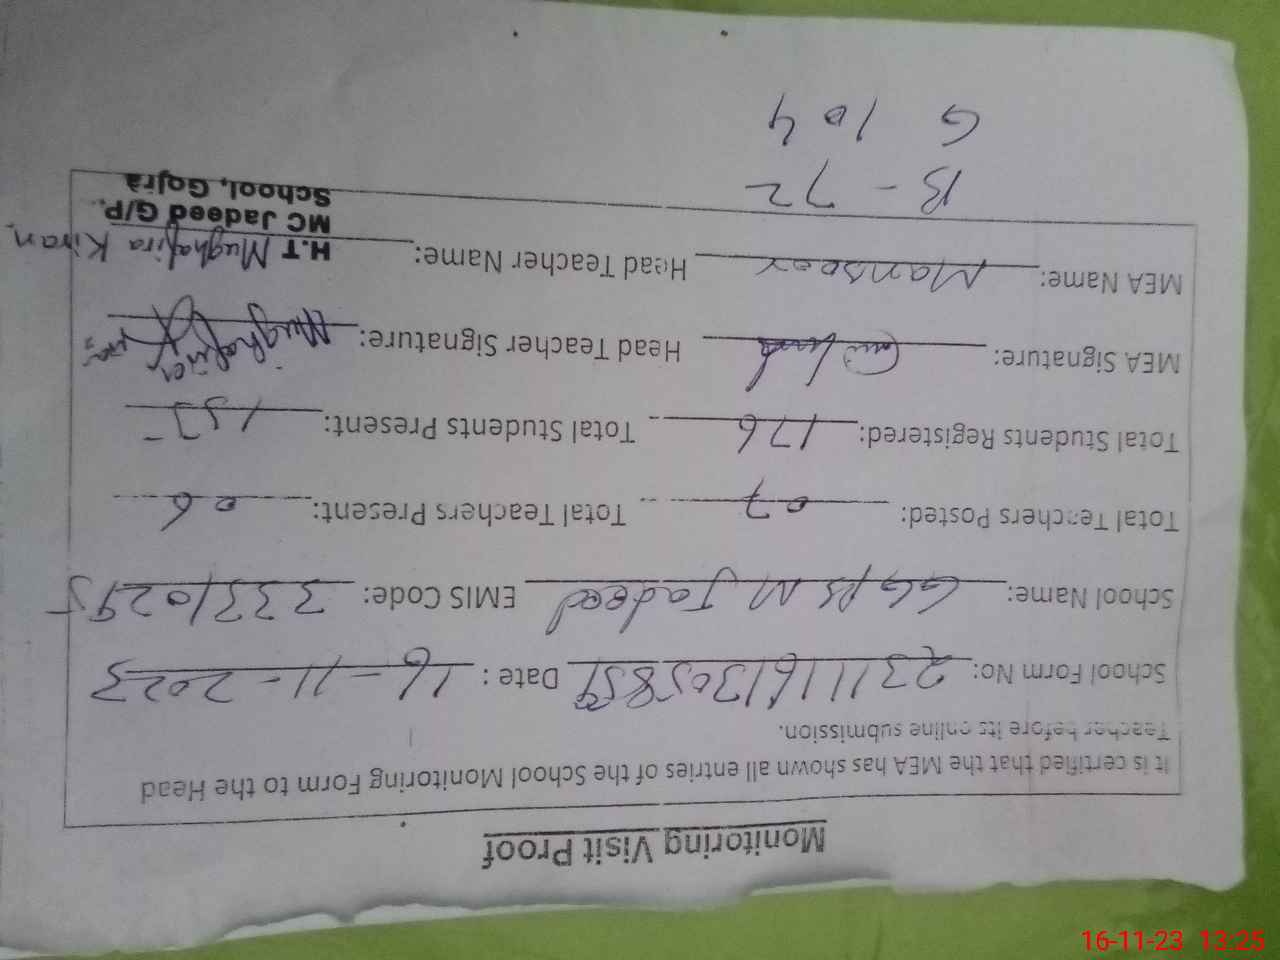 Monitoring Visit Proof
It is certified that the MEA has shown all entries of the School Monitoring Form to the Head
Teacher before its online submission.
School Form No: 231116130585 Date : 16-11-2023
School Name: GGPS M Jadeed EMIS Code: 33310295
Total Teachers Posted: 07 Total Teachers Present: 06
Total Students Registered: 176 Total Students Present:
MEA Signature: Head Teacher Signature: Mughafira
MEA Name: Mansoor Head Teacher Name: H.T Mughafira Kiran
MC Jadeed G/P.
School, Gojra
B - 72
G 104
16-11-23 13:25